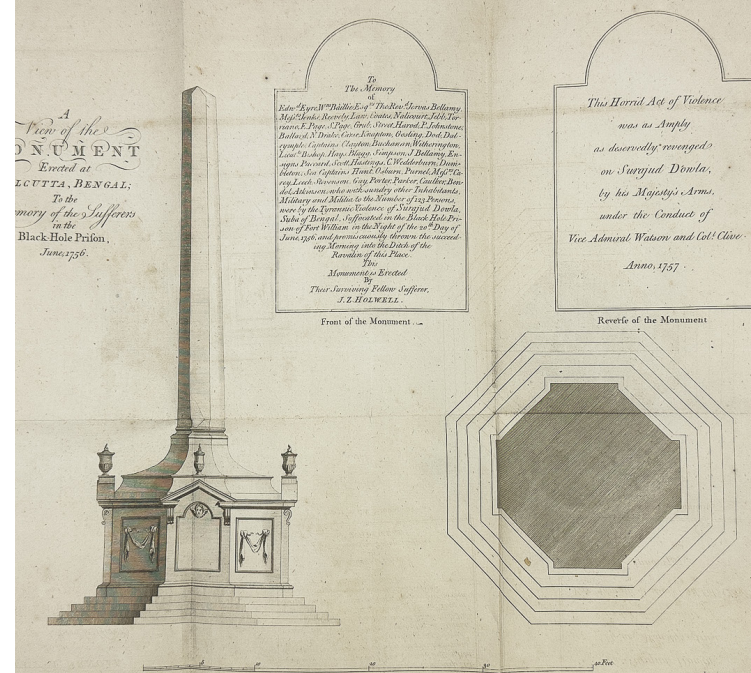 A
View of the
ONUMENT
Erected at
LCUTTA, BENGAL;
To the
mory of the Sufferers
in the
Black-Hole Prison,
June, 1756.
To
The Memory
of
Edwd. Eyre, Wm. Baillie, Esqrs. The Revd. Jervas Bellamy
Messrs. Jenks, Reevely, Law, Coates, Nalicourt, Jebb, Tor-
riano, E. Page, S. Page, Grub, Street, Harod, P. Johnstone,
Ballard, N. Drake, Carse, Knapton, Gosling, Dod, Dal-
rymple; Captains Clayton, Buchanan, Witherington;
Lieuts. Bishop, Hays, Blagg, Simpson, J. Bellamy, En-
signs Paccard, Scott, Hastings, C. Wedderburn, Dum-
bleton; Sea Captains Hunt, Osburn, Purnel, Messrs. Ca-
rey, Leech, Stevenson, Guy, Porter, Parker, Caulker, Ben-
dol, Atkinson, who with sundry other Inhabitants,
Military and Militia, to the Number of 123 Persons,
were by the Tyrannic Violence of Surajud Dowla,
Suba of Bengal, Suffocated in the Black Hole Pri-
son of Fort William in the Night of the 20th. Day of
June, 1756, and promiscuously thrown the succeed-
ing Morning into the Ditch of the
Ravelin of this Place.
This
Monument is Erected
By
Their Surviving Fellow Sufferer,
J. Z. HOLWELL.
Front of the Monument.
This Horrid Act of Violence
was as Amply
as deservedly revenged
on Surajud Dowla,
by his Majesty's Arms,
under the Conduct of
Vice Admiral Watson and Coll. Clive
Anno, 1757
Reverse of the Monument
5 10 20 30 40 Feet